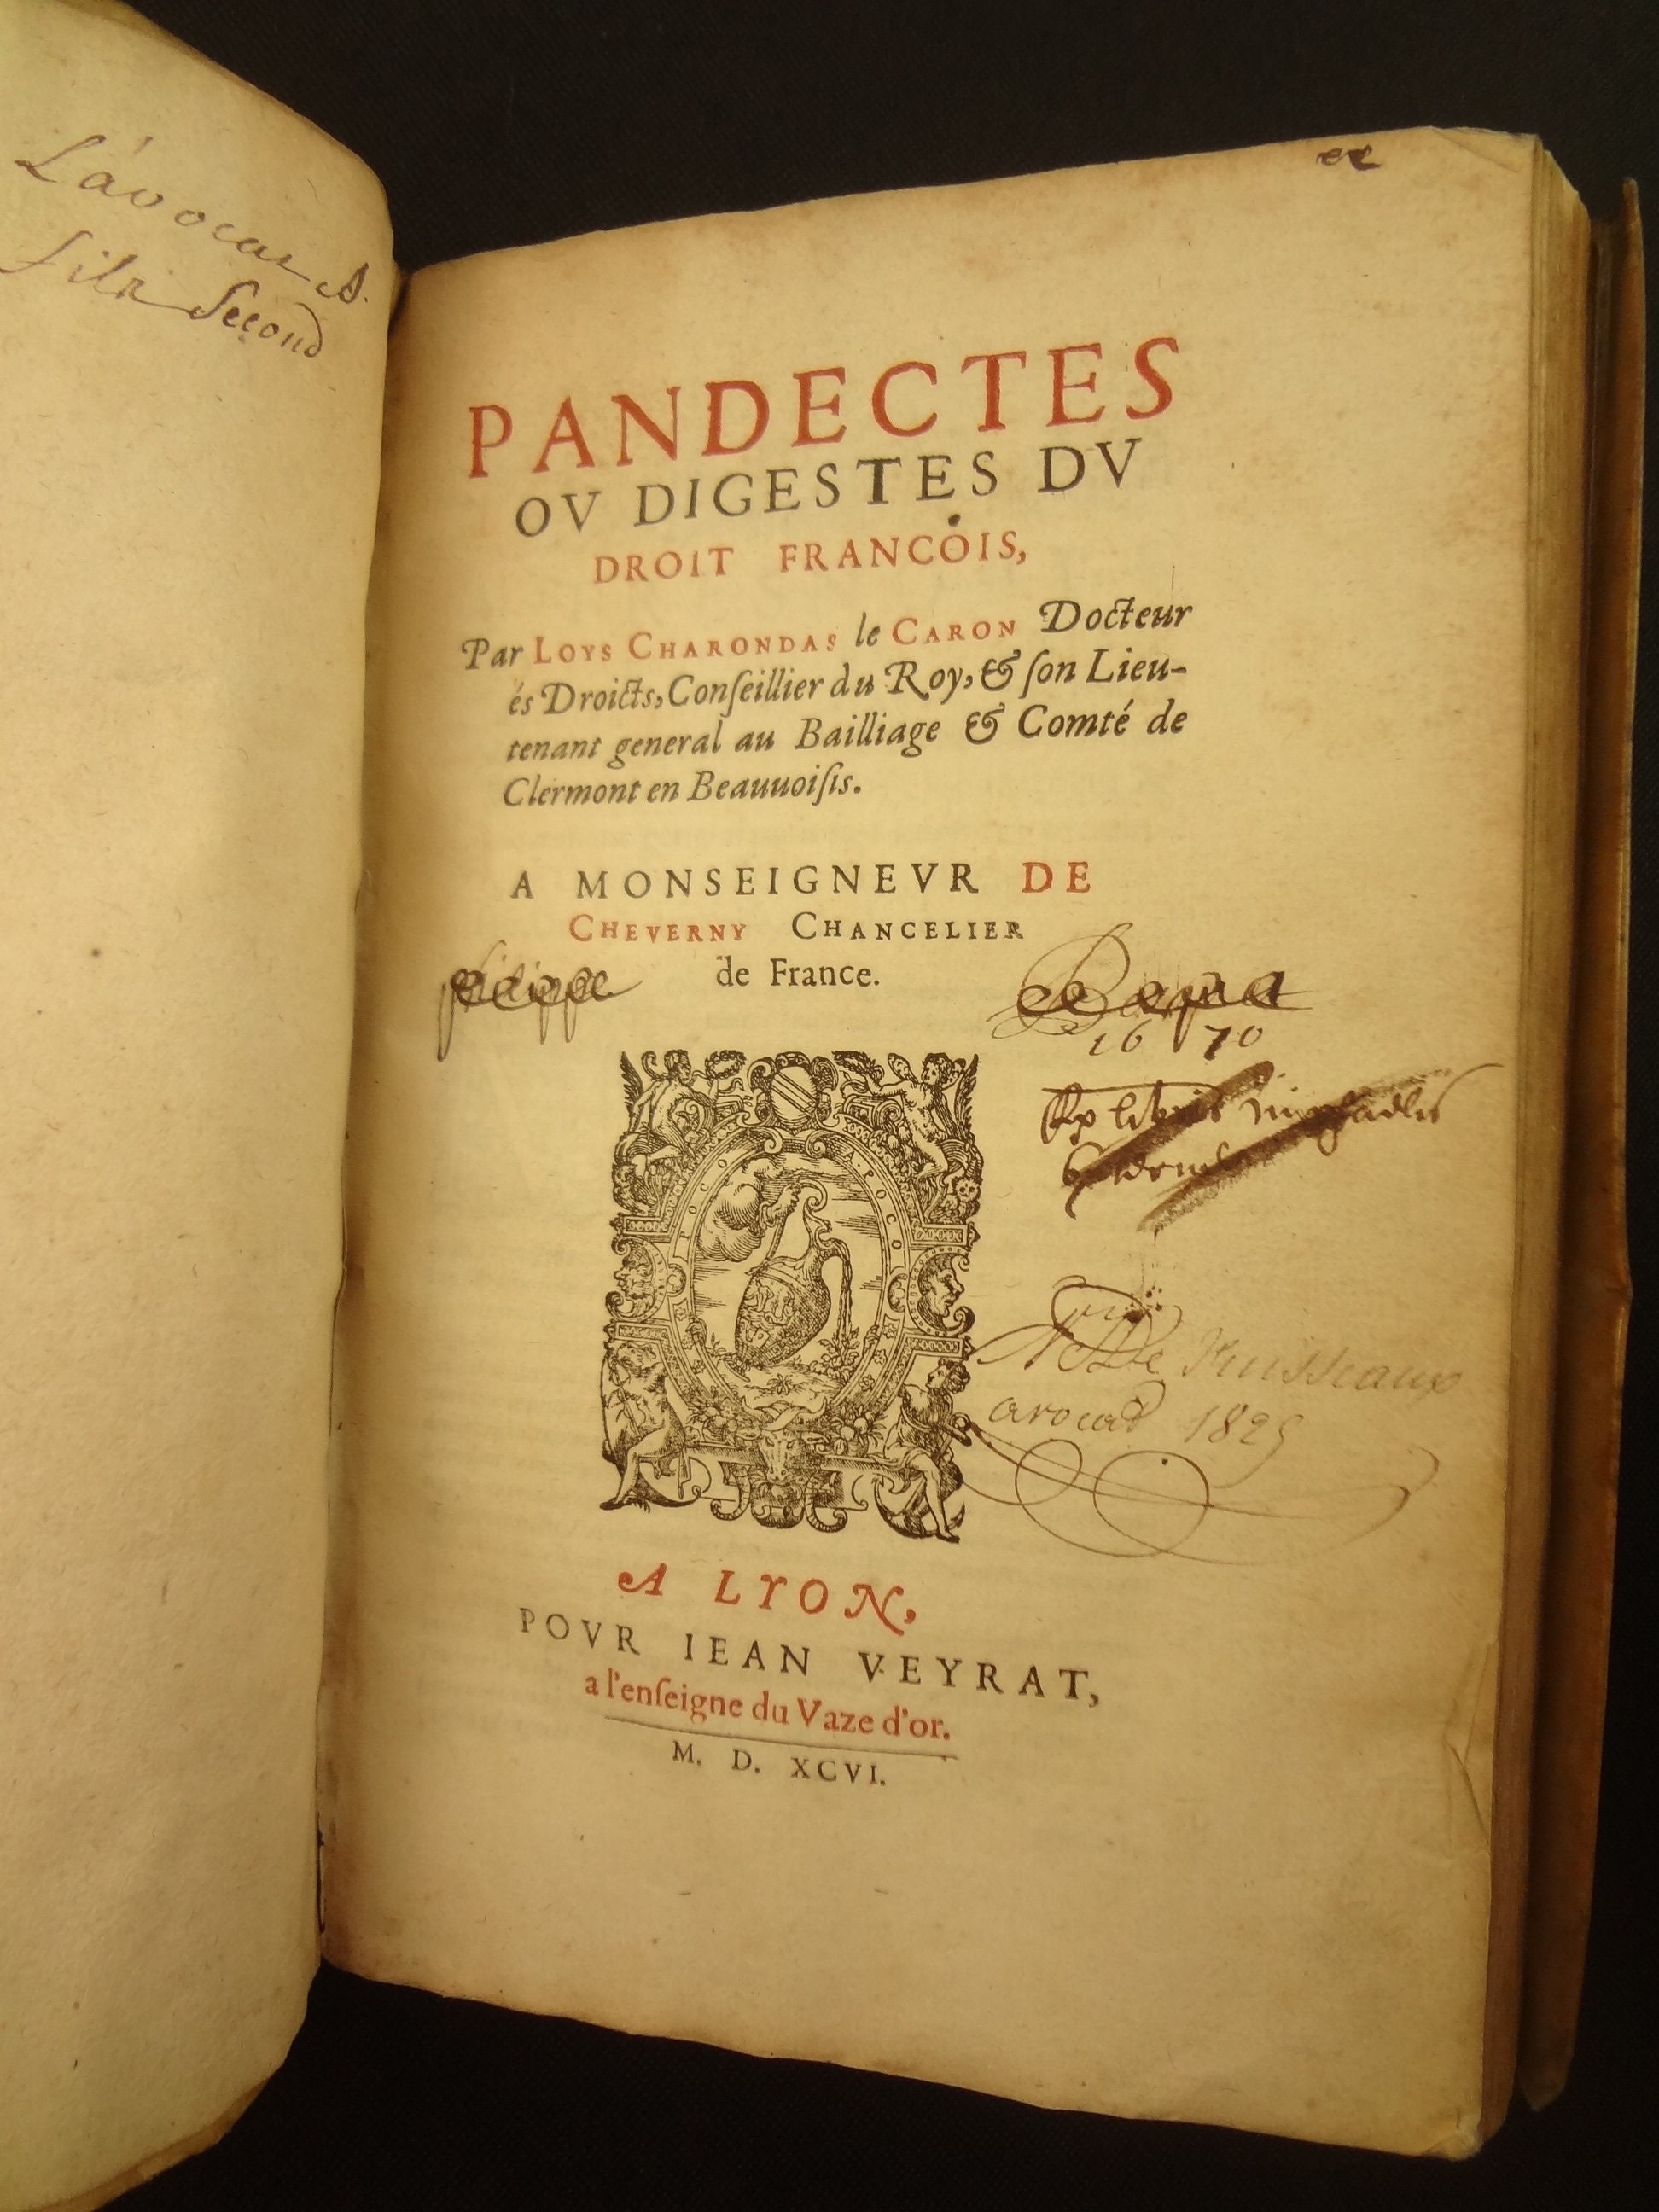 Lávocat
fils Second
PANDECTES
OV DIGESTES DV
DROIT FRANCOIS,
Par LOYS CHARONDAS le CARON Docteur
és Droicts, Conſeillier du Roy, & ſon Lieu-
tenant general au Bailliage & Comté de
Clermont en Beauuoiſis.
A MONSEIGNEVR DE
CHEVERNY CHANCELIER
de France.
philippe
1670
Ex libris
POCO A POCO
De
avocat 1829
A LYON,
POVR IEAN VEYRAT,
a l'enſeigne du Vaze d'or.
M. D. XCVI.